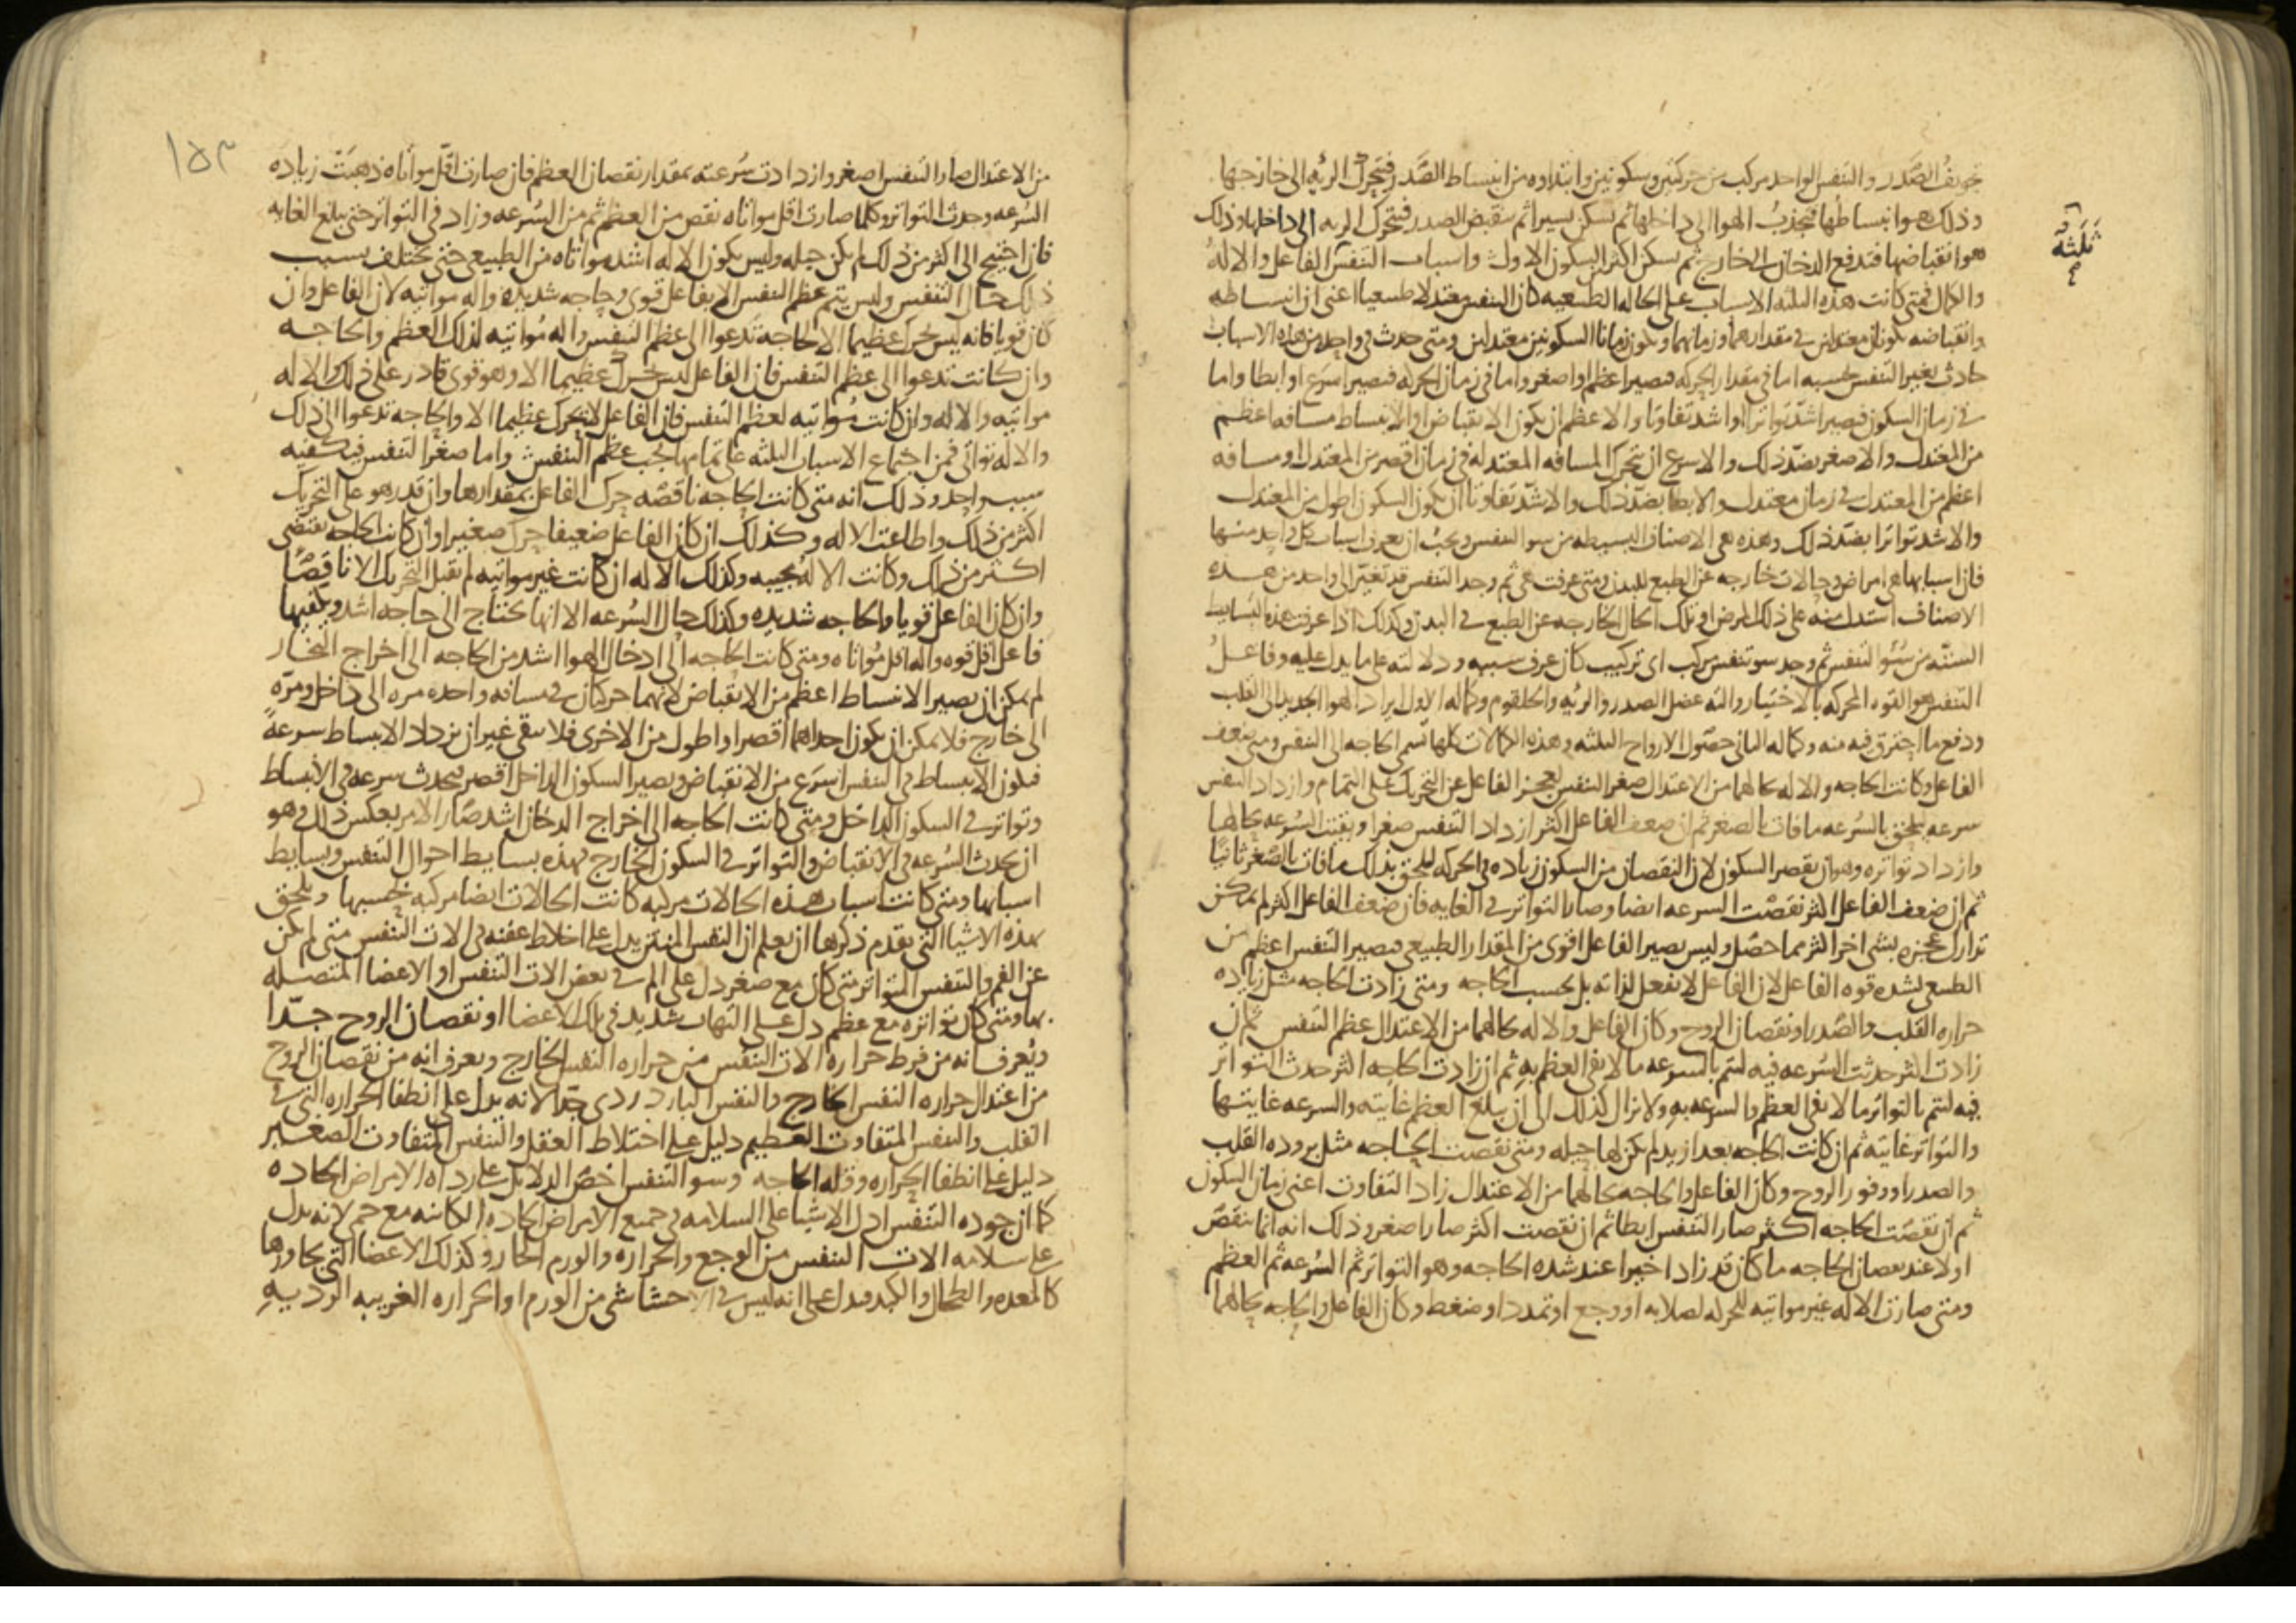 تجويف الصدر والتنفس الواحد مركب من حركتين وسكونين وابتداوه من انبساط الصدر فتتحرك الريه الى خارجها
وذلك هو انبساطها فتجذب الهوا الى داخلها ثم تسكن يسيرا ثم ينقبض الصدر فتتحرك الريه الى داخلها وذلك
هو انقباضها فتدفع الدخان الى خارج ثم تسكن اكثر من السكون الاول واسباب التنفس الفاعل والاله
ثلثة
والكمال فمتى كانت هذه الثلثه الاسباب على الحاله الطبيعيه كان التنفس معتدلا طبيعيا اعنى ان انبساطه
وانقباضه يكونان معتدلين في مقدارهما وزمانهما ويكون زمانا السكونين معتدلين ومتى حدث في واحد من هذه الاسباب
حادث تغير التنفس بحسبه اما في مقدار الحركه فيصير اعظم او اصغر واما في زمان الحركه فيصير اسرع او ابطا واما
في زمان السكون فيصير اشد تواترا او اشد تفاوتا والاعظم ان يكون الانقباض او الانبساط مسافه اعظم
من المعتدل والاصغر بضد ذلك والاسرع ان تتحرك المسافه المعتدله في زمان اقصر من المعتدل او مسافه
اعظم من المعتدل في زمان معتدل والابطا بضد ذلك والاشد تفاوتا ان يكون السكون اطول من المعتدل
والاشد تواترا بضد ذلك وهذه هى الاصناف البسيطه من سو التنفس ويجب ان تعرف اسباب كل واحد منها
فان اسبابها هى امراض وحالات خارجه عن الطبع للبدن ومتى عرفت هى ثم وجد التنفس قد تغير الى واحد من هذه
الاصناف استدل منه على ذلك المرض او تلك الحال الخارجه عن الطبع في البدن وكذلك اذا عرفت هذه البسايط
الستة من سو التنفس ثم وجد سو تنفس مركب اى تركيب كان عرف سببه ودلالته على ما يدل عليه وفاعل
التنفس هو القوه المحركه بالاختيار والته عضل الصدر والريه والحلقوم وكماله الاول ايراد الهوا الجديد الى القلب
ودفع ما احترق فيه منه وكماله الثانى حصول الارواح الثلثه وهذه الكمالات كلها تسمى الحاجه الى التنفس ومتى ضعف
الفاعل وكانت الحاجه والاله بحالهما من الاعتدال صغر التنفس لعجز الفاعل عن التحريك على التمام وازداد التنفس
سرعه ليلحق بالسرعه ما فات بالصغر ثم ان ضعف الفاعل اكثر ازداد التنفس صغرا وبقيت السرعه بحالها
وازداد تواتره وهو ان يقصر السكون لان النقصان من السكون زياده في الحركه ليلحق بذلك ما فات بالصغر ثانيا
ثم ان ضعف الفاعل اكثر نقصت السرعه ايضا وصار التواتر في الغايه فان ضعف الفاعل اكثر لم يمكن
تدارك عجزه بشى اخر اكثر مما حصل وليس يصير الفاعل اقوى من المقدار الطبيعى فيصير التنفس اعظم من
الطبيعى لشده قوه الفاعل لان الفاعل لا يفعل لذاته بل بحسب الحاجه ومتى زادت الحاجه مثل زياده
حراره القلب والصدر او نقصان الروح وكان الفاعل والاله بحالهما من الاعتدال عظم التنفس ثم ان
زادت اكثر حدثت السرعه فيه لتتم بالسرعه ما لا يفى العظم به ثم ان زادت الحاجه اكثر حدث التواتر
فيه لتتم بالتواتر ما لا يفى العظم والسرعه به ولا يزال كذلك الى ان يبلغ العظم غايته والسرعه غايتها
والتواتر غايته ثم ان كانت الحاجه بعد ازيد لم يكن لها حيله ومتى نقصت الحاجه مثل بروده القلب
والصدر او وفور الروح وكان الفاعل والحاجه بحالهما من الاعتدال زاد التفاوت اعنى زمان السكون
ثم ان نقصت الحاجه اكثر صار التنفس ابطا ثم ان نقصت اكثر صار اصغر وذلك انه انما ينقص
اولا عند نقصان الحاجه ما كان قد زاد اخيرا عند شده الحاجه وهو التواتر ثم السرعه ثم العظم
ومتى صارت الاله غير مواتيه للحركه لصلابه او وجع او تمدد او ضغط وكان الفاعل والحاجه بحالهما
١٥٣
من الاعتدال صار التنفس اصغر وازدادت سرعته بمقدار نقصان العظم فان صارت اقل مواتاه ذهبت زياده
السرعه وحدث التواتر وكلما صارت اقل مواتاه نقص من العظم ثم من السرعه وزاد في التواتر حتى يبلغ الغايه
فان احتيج الى اكثر من ذلك لم يكن حيله وليس يكون الاله اشد مواتاه من الطبيعى حتى يختلف بسبب
ذلك حال التنفس وليس يتم عظم التنفس الا بفاعل قوى وحاجه شديده واله مواتيه لان الفاعل وان
كان قويا فانه ليس يحرك عظيما الا لحاجه تدعوا الى عظم التنفس واله مواتيه لذلك العظم والحاجه
وان كانت تدعوا الى عظم التنفس فان الفاعل ليس يحرك عظيما الا وهو قوى قادر على ذلك والاله
مواتيه والاله وان كانت مواتيه لعظم التنفس فان الفاعل لا يحرك عظيما الا والحاجه تدعوا الى ذلك
والاله تواتى فمن اجتماع الاسباب الثلثه على تمامها يجب عظم التنفس واما صغر التنفس فيكفيه
سبب واحد وذلك انه متى كانت الحاجه ناقصه حرك الفاعل بمقدارها وان قدر هو على التحريك
اكثر من ذلك واطاعت الاله وكذلك ان كان الفاعل ضعيفا حرك صغيرا وان كانت الحاجه تقتضى
اكثر من ذلك وكانت الاله مجيبه وكذلك الاله ان كانت غير مواتيه لم تقبل التحريك الا ناقصا
وان كان الفاعل قويا والحاجه شديده وكذلك حال السرعه الا انها تحتاج الى حاجه اشد ويكفيها
فاعل اقل قوه واله اقل مواتاه ومتى كانت الحاجه الى ادخال الهوا اشد من الحاجه الى اخراج البخار
لم يمكن ان يصير الانبساط اعظم من الانقباض لانهما حركتان في مسافه واحده مره الى داخل ومرة
الى خارج فلا يمكن ان يكون احداهما اقصر او اطول من الاخرى فلا يبقى غير ان يزداد الانبساط سرعة
فيكون الانبساط في التنفس اسرع من الانقباض ويصير السكون الداخل اقصر فيحدث سرعه في الانبساط
وتواتر في السكون الداخل ومتى كانت الحاجه الى اخراج الدخان اشد صار الامر بعكس ذلك وهو
ان يحدث السرعه في الانقباض والتواتر في السكون الخارج فهذه بسايط احوال التنفس وبسايط
اسبابها ومتى كانت اسباب هذه الحالات مركبه كانت الحالات ايضا مركبه بحسبها ويلحق
بهذه الاشيا التى تقدم ذكرها ان يعلم ان التنفس المنتن يدل على اخلاط عفنه في الات التنفس متى لم يكن
عن الفم والتنفس المتواتر متى كان مع صغر دل على الم في بعض الات التنفس او الاعضا المتصله
بها ومتى كان تواتره مع عظم دل على التهاب شديد في تلك الاعضا او نقصان الروح جدا
ويعرف انه من فرط حراره الات التنفس من حراره النفس الخارج ويعرف انه من نقصان الروح
من اعتدال حراره النفس الخارج والنفس البارد ردى جدا لانه يدل على انطفا الحراره التى في
القلب والنفس المتفاوت العظيم دليل على اختلاط العقل والتنفس المتفاوت الصغير
دليل على انطفا الحراره وقله الحاجه وسو التنفس اخص الدلايل على رداه الامراض الحاده
كما ان جوده التنفس ادل الاشيا على السلامه في جميع الامراض الحاده الكاينه مع حمى لانه يدل
على سلامه الات التنفس من الوجع والحراره والورم الحار وكذلك الاعضا التى تجاورها
كالمعده والطحال والكبد فيدل على انه ليس في الاحشا شى من الورم او الحراره الغريبه الرديه